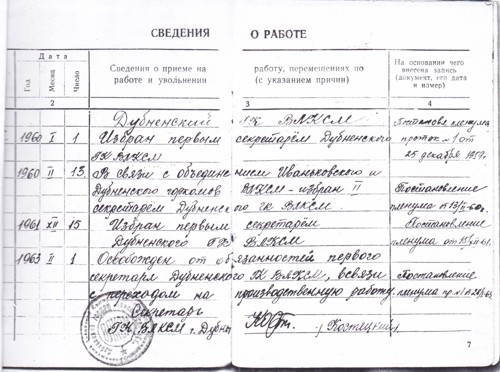 СВЕДЕНИЯ О РАБОТЕ
Дата
Год Месяц Число
Сведения о приеме на работу, перемещениях по
работе и увольнении (с указанием причин)
На основании чего
внесена запись
(документ, его дата
и номер)
2 3 4
Дубненский ГК ВЛКСМ Постановл. пленума
1960 I 1 Избран первым секретарём Дубненского проток №1 от
ГК ВЛКСМ 25 декабря 1959г.
1960 II 13 В связи с объединением Иваньковского и
Дубненского горкомов ВЛКСМ - избран II Постановление
секретарём Дубненского гк ВЛКСМ. пленума от 13/II-60г.
1961 XII 15 Избран первым секретарём Постановление
Дубненского ГК ВЛКСМ пленума от
1963 II 1 Освобожден от обязанностей первого
секретаря Дубненского ГК ВЛКСМ, всвязи Постановление
с переходом на производственную работу. пленума пр. №1
Секретарь
ГК ВЛКСМ г. Дубны (Костецкий)
7